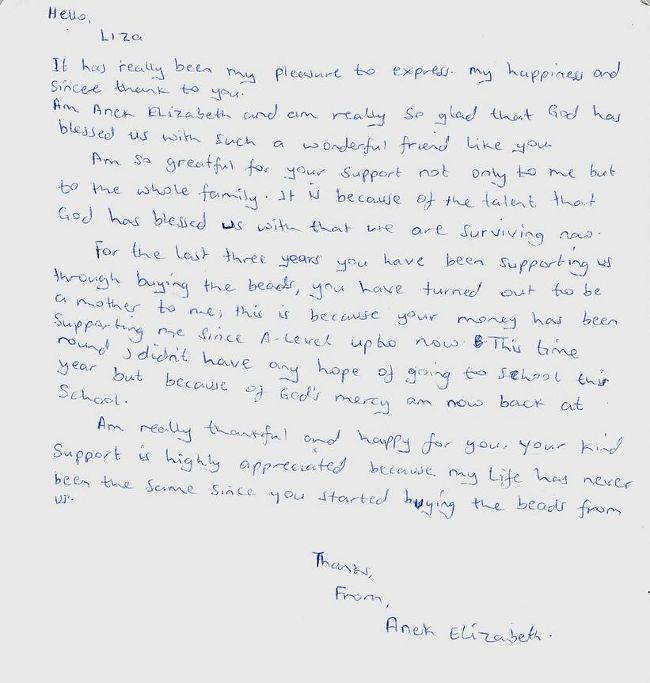 Hello,
Liza
It has really been my pleasure to express my happiness and
Sincere thank to you.
Am Anek ELizabeth and am really so glad that God has
blessed us with such a wonderful friend like you
Am so greatful for your support not only to me but
to the whole family. It is because of the talent that
God has blessed us with that we are surviving now.
For the last three years you have been supporting us
through buying the beads, you have turned out to be
a mother to me, this is because your money has been
Supporting me since A-Level upto now. This time
round I didn't have any hope of going to school this
year but because of God's mercy am now back at
School.
Am really thankful and happy for you, your kind
Support is highly appreciated because my Life has never
been the same since you started buying the beads from
us.
Thanks,
From,
Anek ELizabeth.